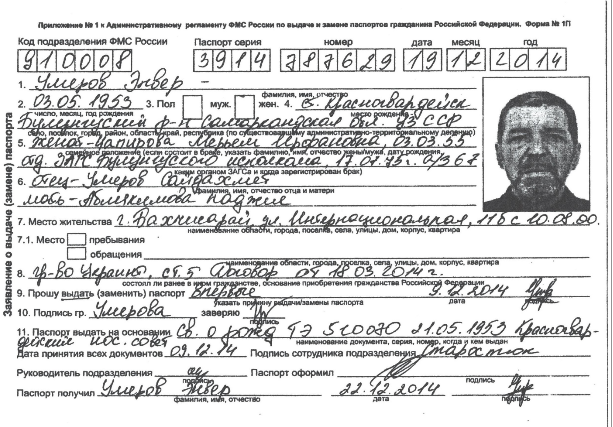 Приложение № 1 к Административному регламенту ФМС России по выдаче и замене паспортов гражданина Российской Федерации. Форма № 1П
Код подразделения ФМС России Паспорт серия номер дата месяц год
910008 3914 787629 19 12 2014
1. Умеров Энвер –
фамилия, имя, отчество
2. 03.05.1953 3. Пол муж. жен. 4. с. Красногвардейск
число, месяц, год рождения место рождения
Булунгурский р-н Самаркандская обл. УзССР
село, поселок, город, район, область, край, республика (по существовавшему административно-территориальному делению)
5. женат - Мерьем Ирфановна 03.03.55
семейное положение (если состоит в браке, указать фамилию, имя, отчество жены/мужа, дату рождения,
отд. ЗАГС исполкома
каким органом ЗАГСа и когда зарегистрирован брак)
6. отец - Умеров
фамилия, имя, отчество отца и матери
мать -
7. Место жительства г. Бахчисарай ул. Интернациональная, 116 с
наименование области, города, поселка, села, улицы, дом, корпус, квартира
7.1. Место пребывания
обращения
наименование области, города, поселка, села, улицы, дом, корпус, квартира
8. гр-во Украины, ст. 5 Договор от 18.03.2014 г.
состоял ли ранее в ином гражданстве, основание приобретения гражданства Российской Федерации
9. Прошу выдать (заменить) паспорт впервые 9.12.2014
указать причину выдачи/замены паспорта дата подпись
10. Подпись гр. Умерова заверяю
подпись
11. Паспорт выдать на основании Св. о рожд 510070 21.05.1953 Красногвар-
наименование документа, серия, номер, когда и кем выдан
дейским пос. совет
Дата принятия всех документов 09.12.14 Подпись сотрудника подразделения
Руководитель подразделения Паспорт оформил
подпись подпись
Паспорт получил Умеров Энвер 22.12.2014
фамилия, имя, отчество дата подпись
Заявление о выдаче (замене) паспорта